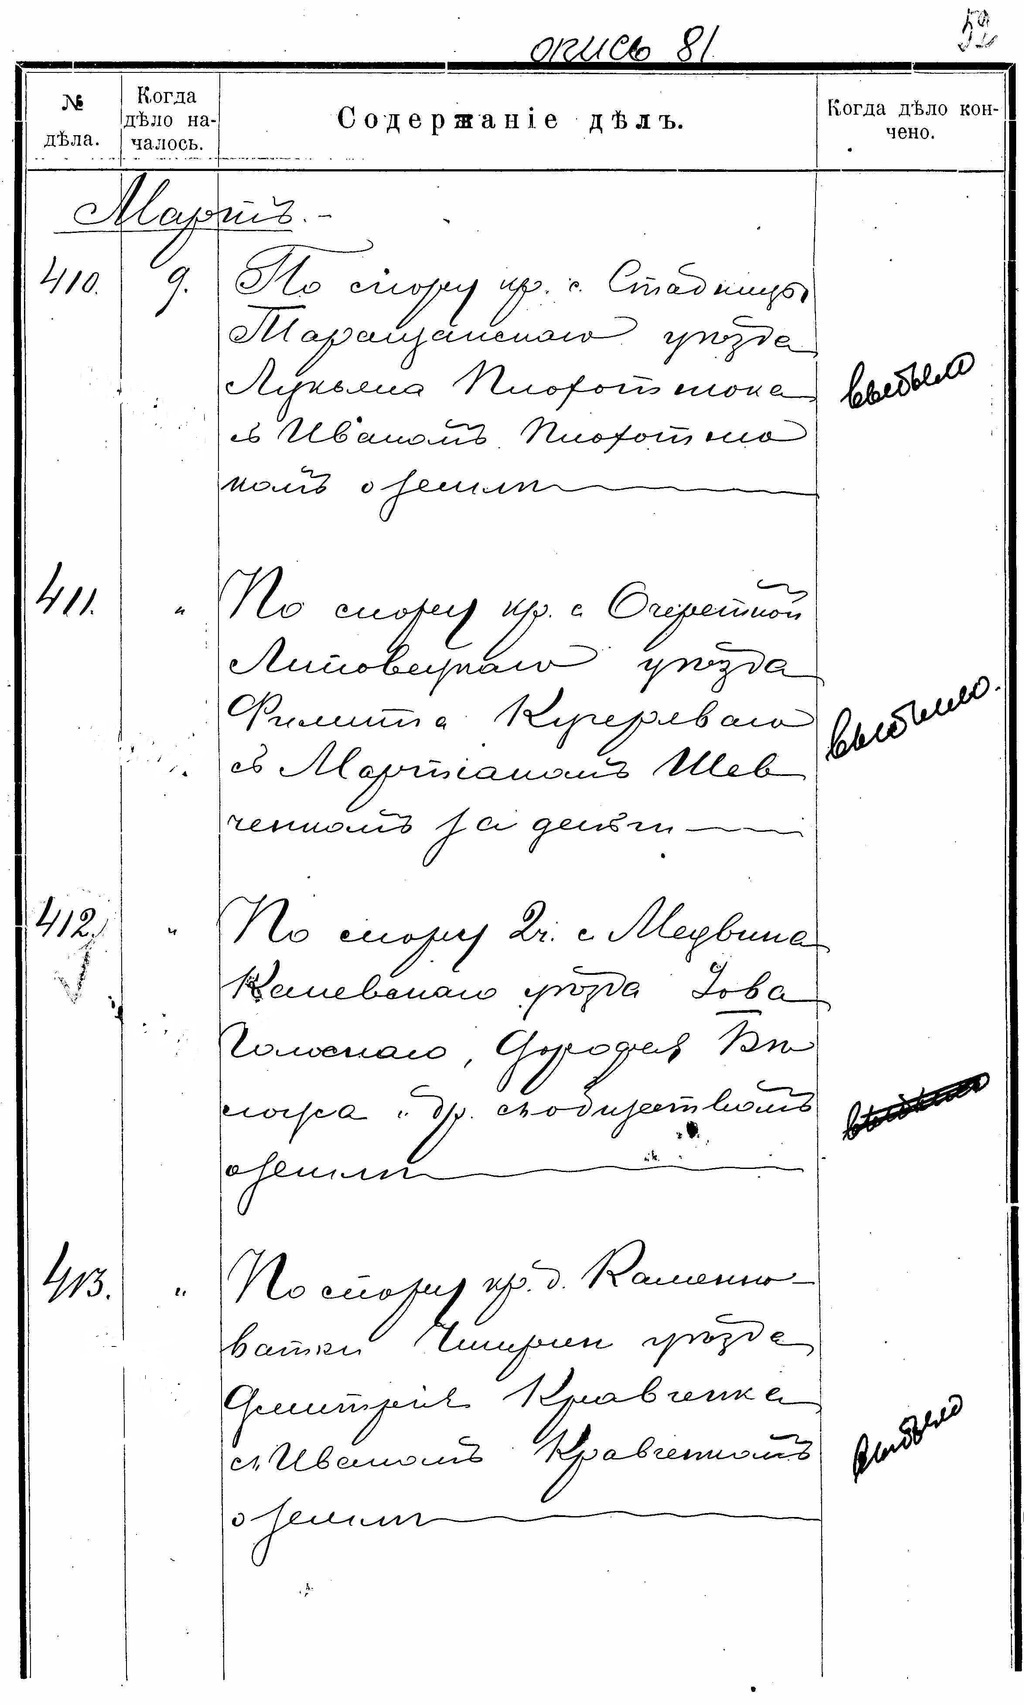 опись 81
52
№ дѣла.
Когда дѣло началось.
Содержаніе дѣлъ.
Когда дѣло кончено.
Мартъ.
410. 9. По спору кр. с. Стадницы
Таращанскаго уѣзда
Лукьяна
съ Иваномъ
комъ о землѣ
выбыло
411. " По спору кр. с. Очеретной
Липовецкаго уѣзда
Филиппа Кучереваго
съ Мартіаномъ Шев
ченкомъ за деньги
выбыло.
412. " По спору 2ч. с. Медвина
Каневскаго уѣзда Іова
Дорофея
и др. съ обществомъ
о землѣ
выбыло
413. " По спору кр. д. Каменно-
ватки Чигирин уѣзда
Дмитрія Кравченка
съ Иваномъ Кравченкомъ
о землѣ
выбыло